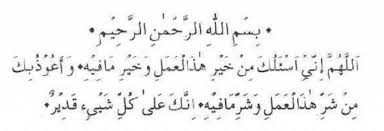 • بِسْمِ اللهِ الرَّحْمٰنِ الرَّحِيْمِ •
اَللّٰهُمَّ اِنِّيْ اَسْئَلُكَ مِنْ خَيْرِ هٰذَاالْعَمَلِ وَخَيْرِ مَافِيْهِ • وَ اَعُوْذُبِكَ
مِنْ شَرِّ هٰذَاالْعَمَلِ وَشَرِّمَافِيْهِ • اِنَّكَ عَلىٰ كُلِّ شَيْیءٍ قَدِيْرٌ •